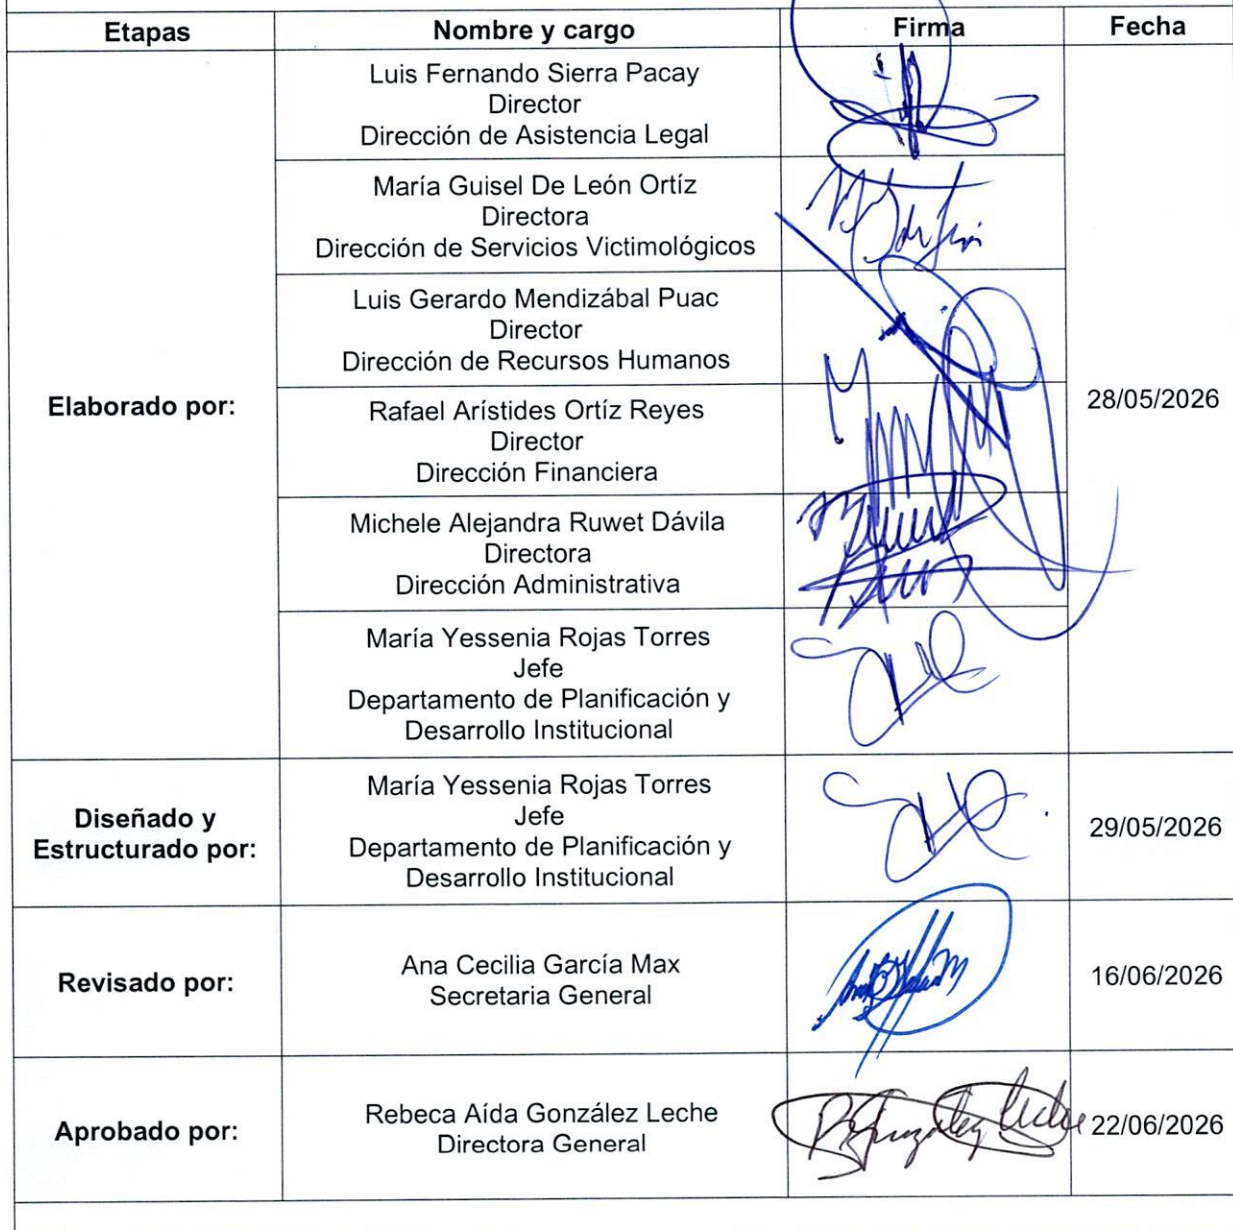 Etapas Nombre y cargo Firma Fecha
Elaborado por:
Luis Fernando Sierra Pacay
Director
Dirección de Asistencia Legal
María Guisel De León Ortíz
Directora
Dirección de Servicios Victimológicos
Luis Gerardo Mendizábal Puac
Director
Dirección de Recursos Humanos
Rafael Arístides Ortíz Reyes
Director
Dirección Financiera
Michele Alejandra Ruwet Dávila
Directora
Dirección Administrativa
María Yessenia Rojas Torres
Jefe
Departamento de Planificación y
Desarrollo Institucional
28/05/2026
Diseñado y
Estructurado por:
María Yessenia Rojas Torres
Jefe
Departamento de Planificación y
Desarrollo Institucional
29/05/2026
Revisado por:
Ana Cecilia García Max
Secretaria General
16/06/2026
Aprobado por:
Rebeca Aída González Leche
Directora General
22/06/2026